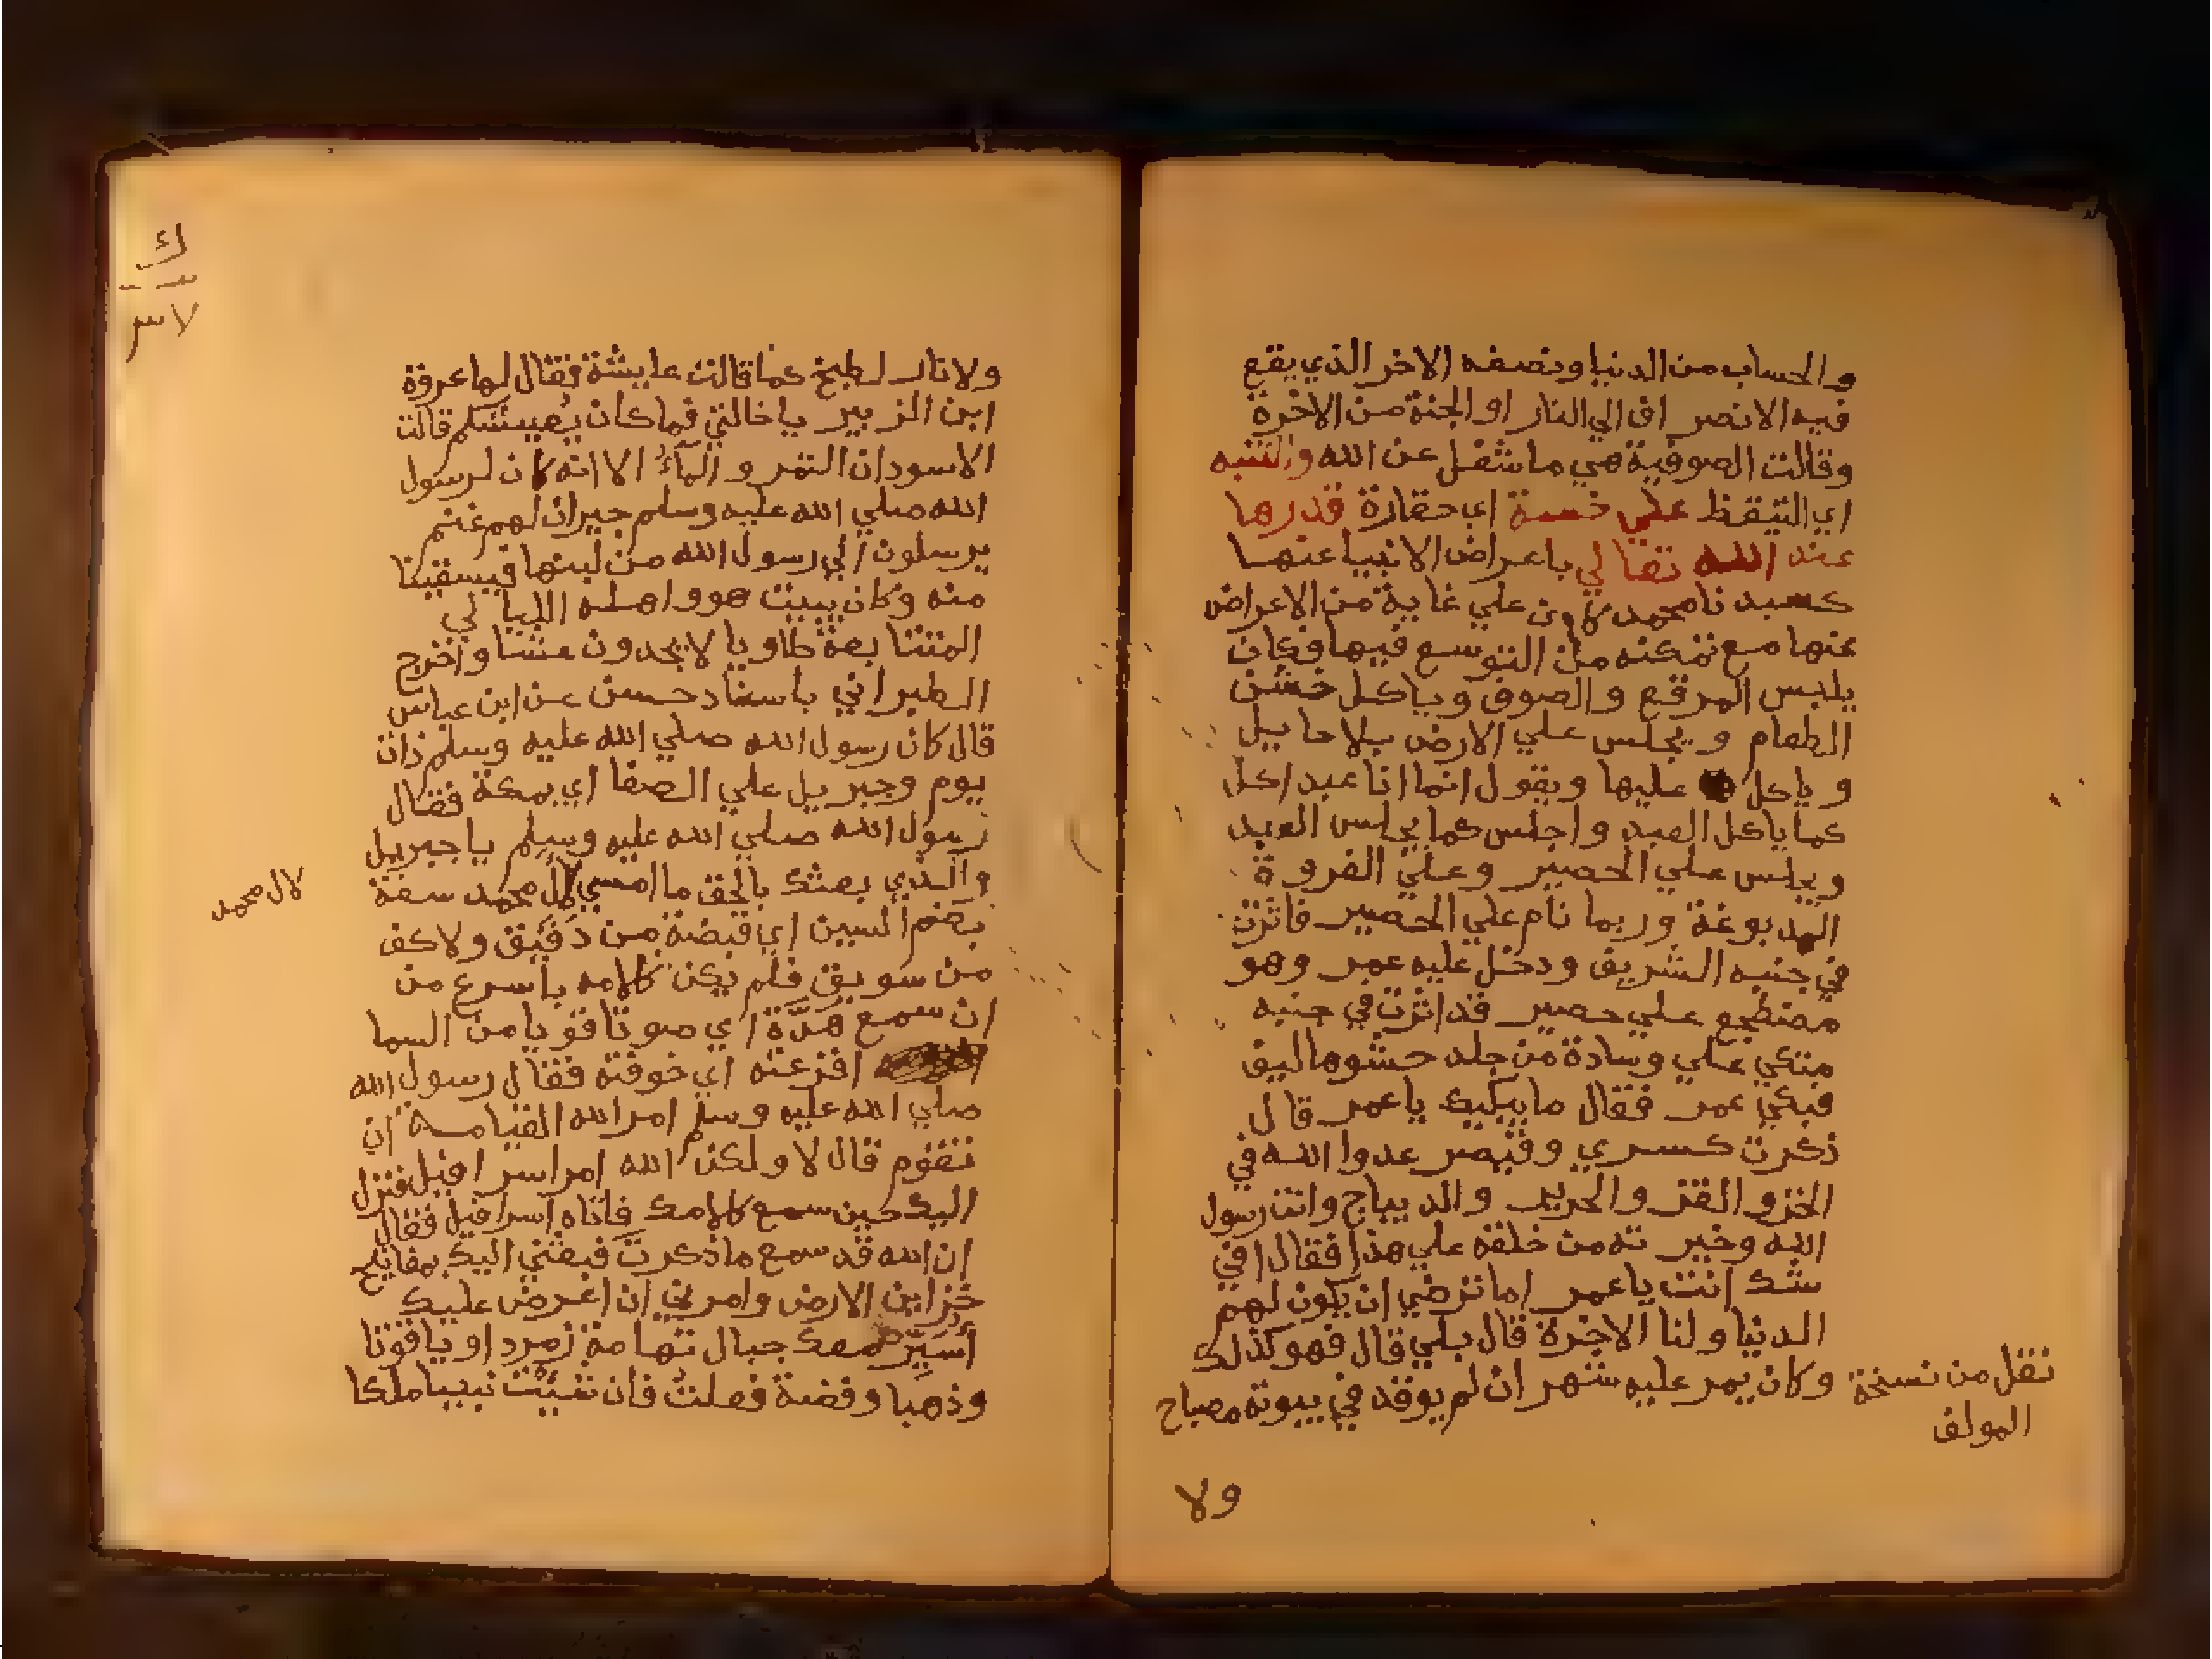 والحساب من الدنيا ونصفه الاخر الذي يقع
فيه الانصراف الي النار او الجنة من الاخرة
وقالت الصوفية هي ما شغل عن الله والتنبه
اي التيقظ علي خسة اي حقارة قدرها
عند الله تعالي باعراض الانبيا عنها
كسيدنا محمد كاون علي غاية من الاعراض
عنها مع تمكنه من التوسع فيها فكان
يلبس المرقع والصوف وياكل خشن
الطعام ويجلس علي الارض بلا حايل
وياكل عليها ويقول انما انا عبد اكل
كما ياكل العبد واجلس كما يجلس العبد
ويجلس علي الحصير وعلي الفروة
المدبوغة وربما نام علي الحصير فاثرت
في جنبه الشريف ودخل عليه عمر وهو
مضطجع علي حصير قد اثرت في جنبه
متكي علي وسادة من جلد حشوها ليف
فبكي عمر فقال ما يبكيك يا عمر قال
ذكرت كسري وقيصر عدوا الله في
الخز والقز والحرير والديباج وانت رسول
الله وخيرته من خلقه علي هذا فقال افي
شك انت يا عمر اما ترضي ان يكون لهم
الدنيا ولنا الاخرة قال بلي قال فهو كذلك
وكان يمر عليه شهر ان لم يوقد في بيوته مصباح
نقل من نسخة
المولف
ولا
ك
لاس
ولا نار لطبخ كما قالت عايشة فقال لها عروة
ابن الزبير يا خالتي فما كان يُعيشكم قالت
الاسودان التمر والمآءُ الا انه كان لرسول
الله صلي الله عليه وسلم جيران لهم غنم
يرسلون الي رسول الله من لبنها فيسقينا
منه وكان يبيت هو واهله الليالي
المتتابعة طاويا لا يجدون عشا واخرج
الطبراني باسناد حسن عن ابن عباس
قال كان رسول الله صلي الله عليه وسلم ذات
يوم وجبريل علي الصفا اي بمكة فقال
رسول الله صلي الله عليه وسلم يا جبريل
والذي بعثك بالحق ما امسي لال محمد سفة
لال محمد
بضم السين اي قبضة من دقيق ولا كف
من سويق فلم يكن كلامه باسرع من
ان سمع هَدَّة اي صوتا قويا من السما
افزعته اي خوفته فقال رسول الله
صلي الله عليه وسلم امر الله القيامة ان
تقوم قال لا ولكن الله امر اسرافيل فنزل
اليك حين سمع كلامك فاتاه اسرافيل فقال
ان الله قد سمع ما ذكرتَ فبعثني اليك بمفاتيح
خزاين الارض وامرني ان اعرض عليك
أسَيِّر معك جبال تهامة زمرد او ياقوتا
وذهبا وفضة فعلتُ فان شيئت نبييا ملكا